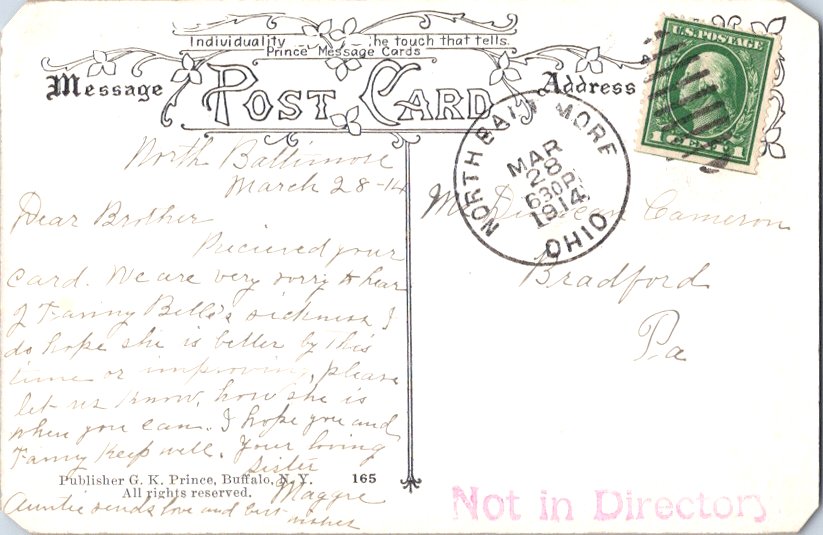 Individuality he touch that tells.
Prince Message Cards
Message
POST CARD
Address
U.S. POSTAGE
1 CENT 1
NORTH BALTIMORE
MAR
28
630P.
1914
OHIO
North Baltimore
March 28-14
Dear Brother
Recieved your
card. We are very sorry to hear
of Fanny Belle's sickness I
do hope she is better by this
time or improving, please
let us know, how she is
when you can. I hope you and
Fanny keep well. Your loving
Sister
Maggie
Auntie sends love and best
wishes
Publisher G. K. Prince, Buffalo, N.Y. 165
All rights reserved.
Mr Duncan Cameron
Bradford
Pa
Not in Directory